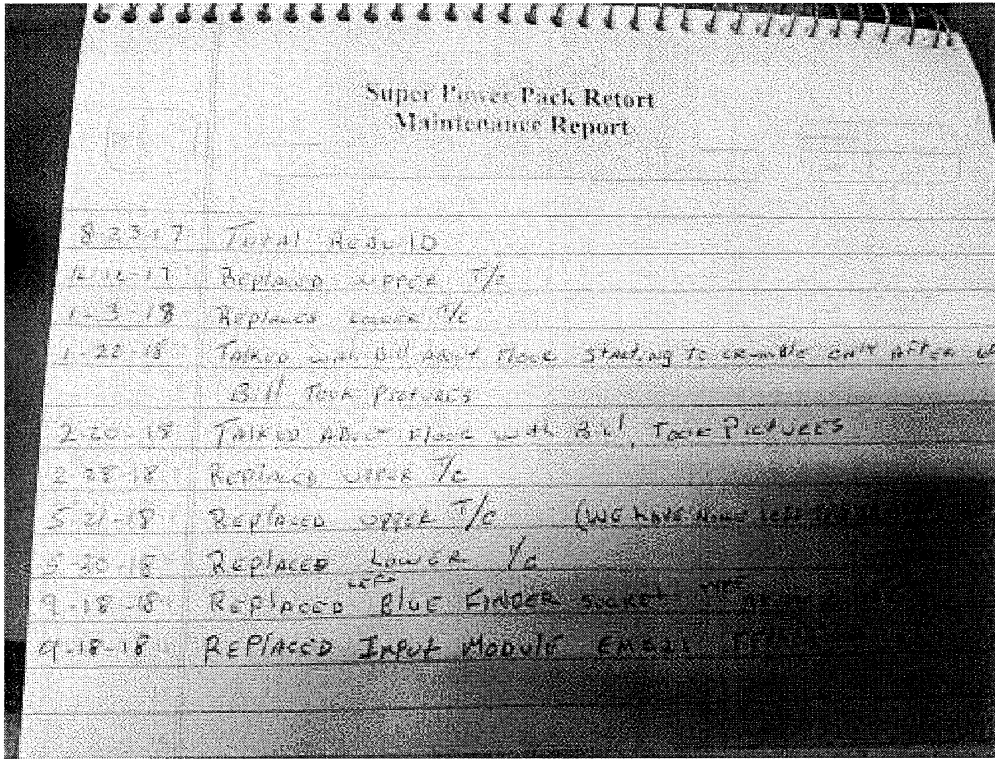 Super Power Pack Retort
Maintenance Report
8-23-17 Total Rebuild
17 Replaced upper T/C
1-3-18 Replaced Lower T/C
1-22-18 Talked with Bill About Floor Starting to crumble only After
Bill Took Pictures
2-20-18 Talked About Floor with Bill, Took Pictures
2-28-18 Replaced upper T/C
5-21-18 Replaced upper T/C (WE HAVE None left
5-30-18 Replaced Lower T/C
9-18-18 Replaced Left Blue FINDER Socket
9-18-18 REPlACED INPut MODulE